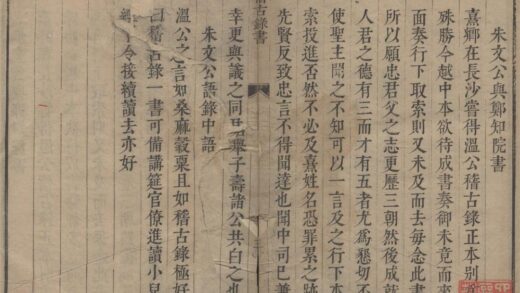 朱文公與鄭知院書
熹鄉在長沙嘗得溫公稽古錄正本别
殊勝今越中本欲待成書奏御未竟而來
面奏行下取索則又未及而去每念此書
所以願忠君父之志更歷三朝然後成就
人君之德有三而才有五者尤爲懇切不
使聖主聞之不知可以一言及之行下本
索投進否然不必及熹姓名恐罪累之跡
先賢反致忠言不得聞達也聞中可已兼
稽古錄書
幸更與議之同舉子壽諸公共白之也
朱文公語錄中語
溫公之言如桑麻穀粟且如稽古錄極好
曰稽古錄一書可備講筵官僚進讀小兒
了令接續讀去亦好